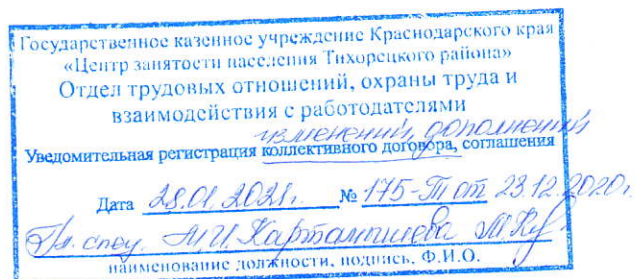 Государственное казенное учреждение Краснодарского края
«Центр занятости населения Тихорецкого района»
Отдел трудовых отношений, охраны труда и
взаимодействия с работодателями
изменений, дополнений
Уведомительная регистрация коллективного договора, соглашения
Дата 28.01.2021г. № 175-Т от 23.12.2020г.
Гл. спец. М.И. Карташева
наименование должности, подпись, Ф.И.О.